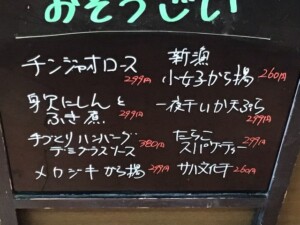 おそうざい
チンジャオロース 299円
身欠にしんと
ふき煮 299円
手づくりハンバーグ
デミグラスソース 380円
メカジキから揚 299円
新漁
小女子から揚 260円
一夜干いか天ぷら
299円
たらこ
スパゲティー 299円
サバ文化干 260円